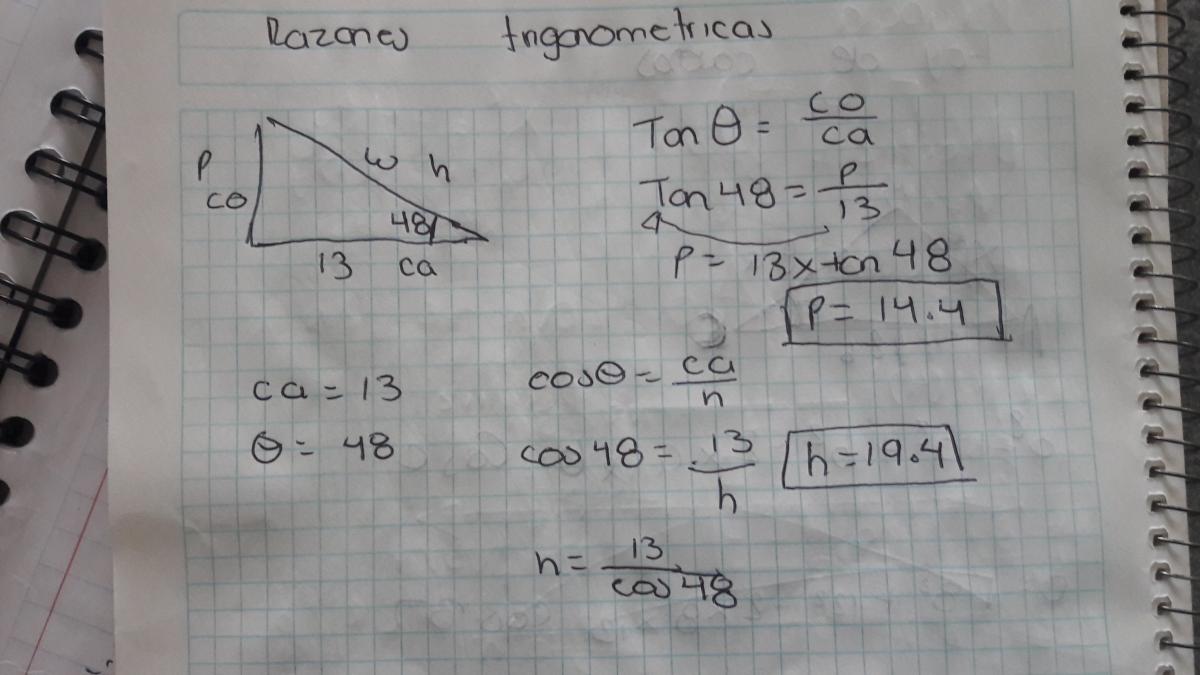 Razones trigonometricas
P
co
w h
48
13 ca
Tan θ = co/ca
Tan 48 = P/13
P = 13 x tan 48
P = 14.4
ca = 13
θ = 48
cos θ = ca/h
cos 48 = 13/h
h = 19.4
h = 13/cos 48